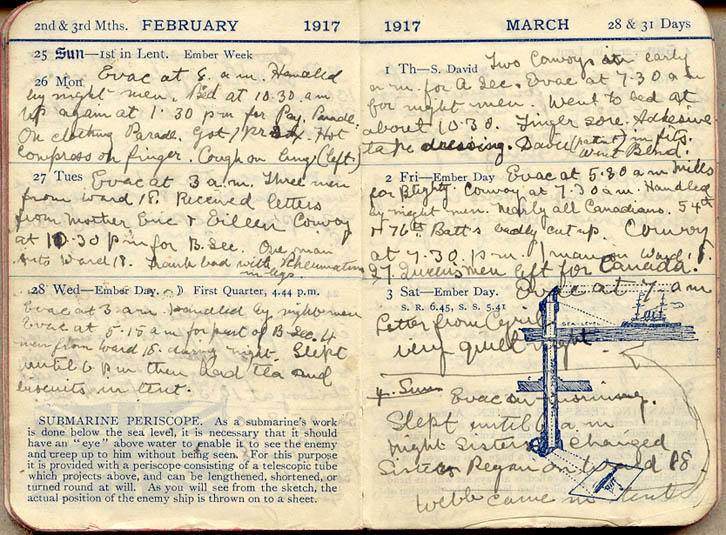 2nd & 3rd Mths. FEBRUARY 1917
25 Sun—1st in Lent. Ember Week
26 Mon Evac at 8 a.m. Handled
by night men. Bed at 10.30 am
up again at 1.30 pm for Pay Parade.
On clothing Parade. Got 1 pr Hot
compress on finger. Cough on lung (left)
27 Tues Evac at 3 a.m. Three men
from ward 18. Received letters
from Mother Eric & Eileen Convoy
at 10.30 pm for B. Sec. One man
into Ward 18. Frank bad with Rheumatism
in legs.
28 Wed—Ember Day. ☽ First Quarter, 4.44 p.m.
Evac at 3 am. Handled by night men
Evac at 5.15 am for part of B Sec. 4
men from ward 18. during night. Slept
until 6 pm then had tea and
biscuits in tent.
SUBMARINE PERISCOPE. As a submarine's work
is done below the sea level, it is necessary that it should
have an "eye" above water to enable it to see the enemy
and creep up to him without being seen. For this purpose
it is provided with a periscope consisting of a telescopic tube
which projects above, and can be lengthened, shortened, or
turned round at will. As you will see from the sketch, the
actual position of the enemy ship is thrown on to a sheet.
1917 MARCH 28 & 31 Days
1 Th—S. David Two Convoys in early
a.m. for A Sec. Evac at 7.30 a m
for night men. Went to bed at
about 10.30. Finger sore. Adhesive
tape dressing. David (patient) in fits.
Went Blind.
2 Fri—Ember Day Evac at 5.30 a m Mills
for Blighty. Convoy at 7.30 am. Handled
by night men. Nearly all Canadians. 54th
& 76th Batt's badly cut up. Convoy
at 7.30 p.m. 1 man on Ward 18
27 Queens men left for Canada.
3 Sat—Ember Day. Evac at 7 am
S. R. 6.45, S. S. 5.41
Letter from Cyril
SEA LEVEL
very quiet night
4. Sun Evac on morning.
Slept until a m
night Sisters changed
Sister Regan on Ward 18.
Webb came in tent